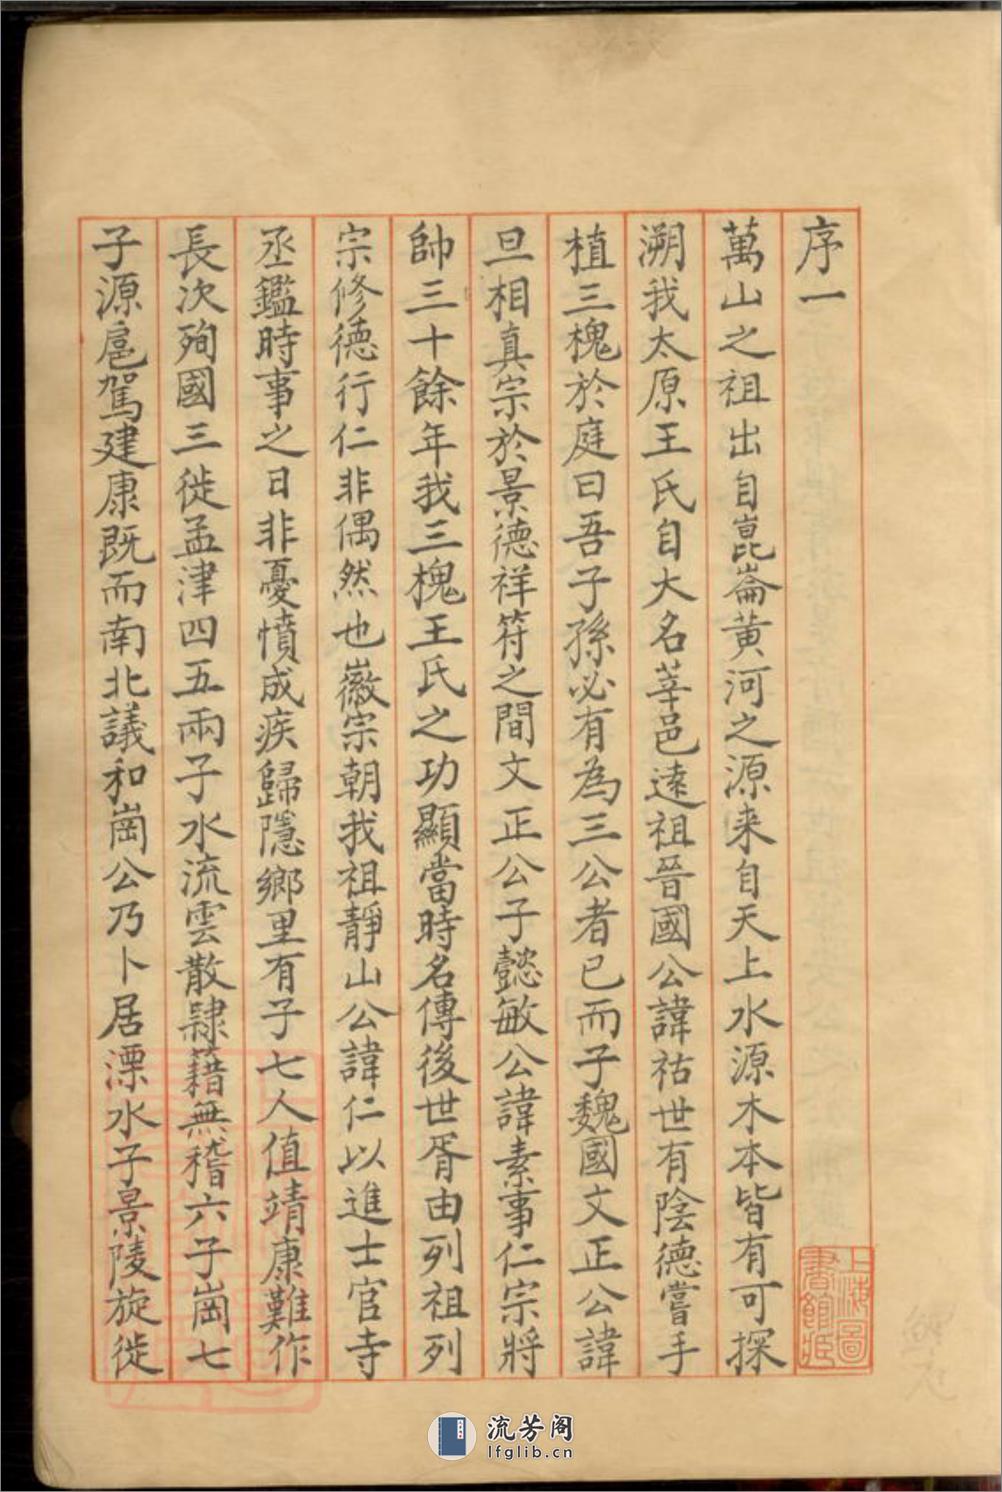 序一
萬山之祖出自崑崙黃河之源来自天上水源木本皆有可探
溯我太原王氏自大名莘邑遠祖晉國公諱祜世有陰德嘗手
植三槐於庭曰吾子孫必有為三公者已而子魏國文正公諱
旦相真宗於景德祥符之間文正公子懿敏公諱素事仁宗將
帥三十餘年我三槐王氏之功顯當時名傳後世胥由列祖列
宗修德行仁非偶然也徽宗朝我祖靜山公諱仁以進士官寺
丞鑑時事之日非憂憤成疾歸隱鄉里有子七人值靖康難作
長次殉國三徙孟津四五兩子水流雲散隸籍無稽六子崗七
子源扈駕建康既而南北議和崗公乃卜居溧水子景陵旋徙
上海圖書館藏
流芳阁
lfglib.cn